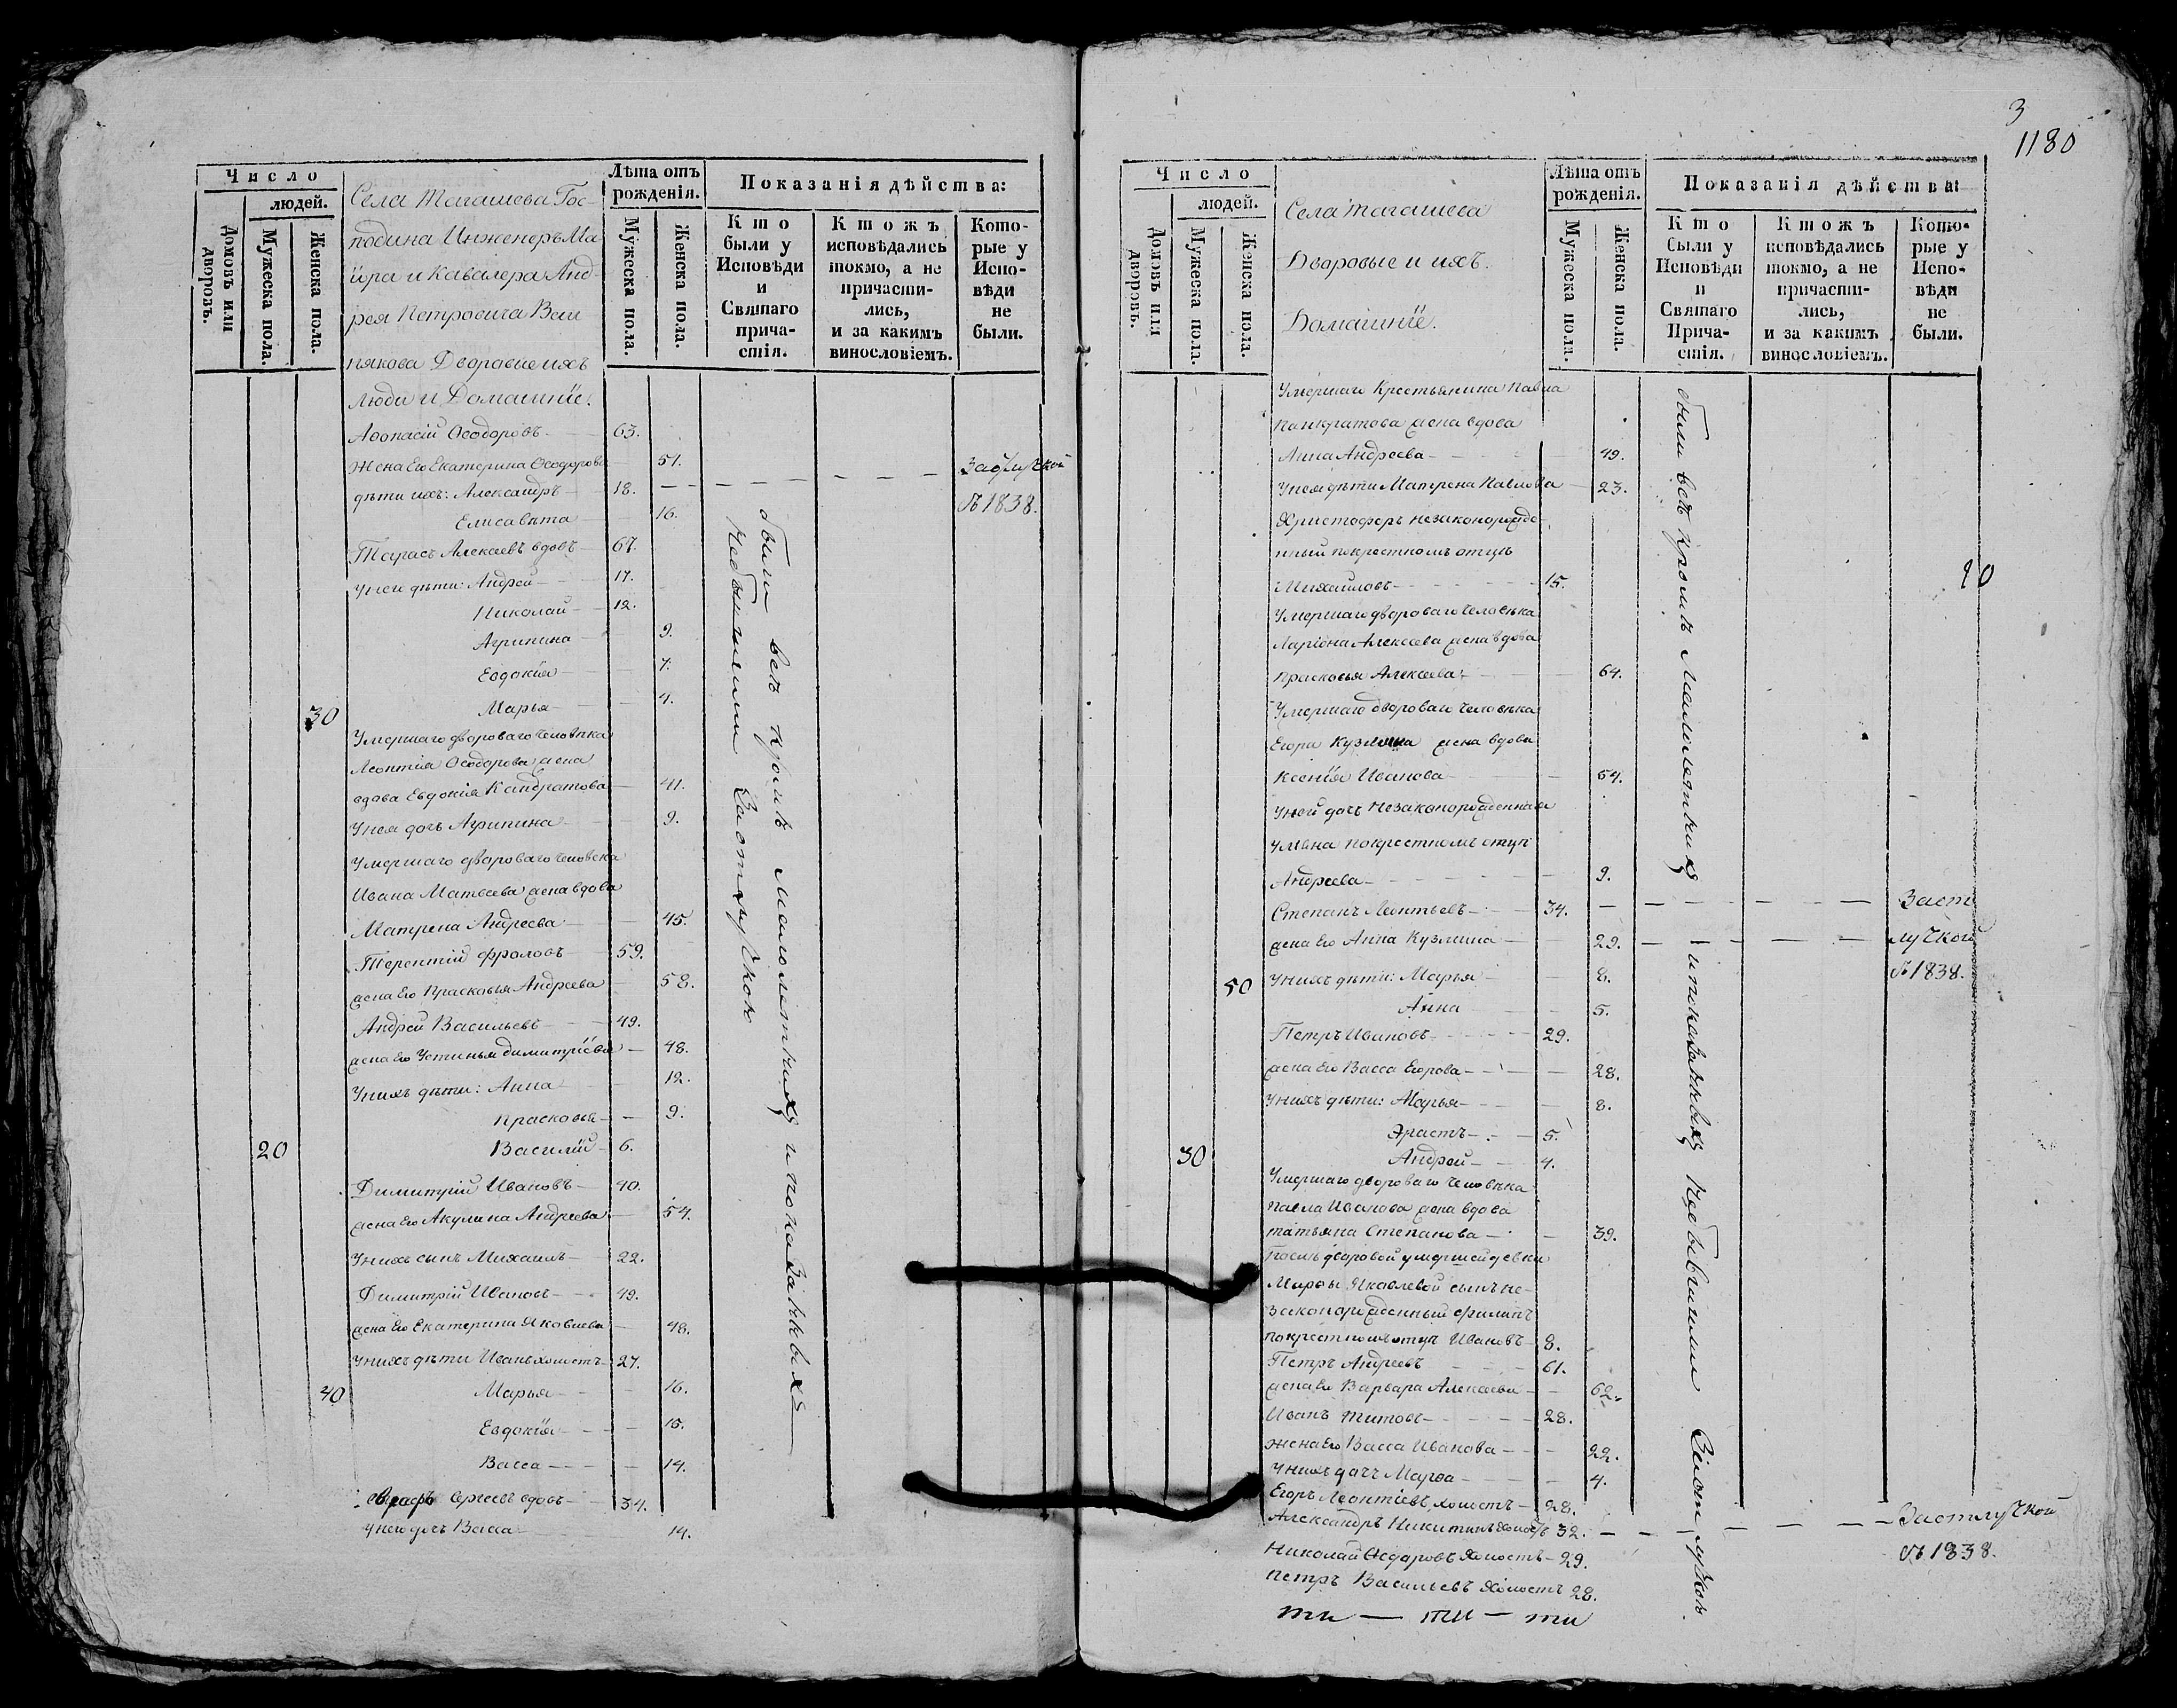 Число
людей.
Домовъ или дворовъ.
Мужеска пола.
Женска пола.
Села Тагашева Гос-
подина Инженеръ Ма-
іора и Кавалера Анд-
рея Петровича Веш-
някова Дворовые ихъ
люди и Домашніе.
Лѣта отъ рожденія.
Мужеска пола.
Женска пола.
Показанія дѣйства:
Кто были у Исповѣди и Святаго причастія.
Ктожъ исповѣдались токмо, а не причастились, и за какимъ винословіемъ.
Которые у Исповѣди не были.
Аѳонасій Ѳеодоровъ 63.
Жена Его Екатерина Ѳеодорова 51. За отлучкой
дѣти ихъ: Александръ 18. съ 1838.
Елисавѣта 16.
Тарасъ Алексѣевъ вдовъ 67.
у него дѣти: Андрей 17.
Николай 12.
Агрипина 9.
Евдокія 7.
30 Марья 4.
Умершаго двороваго человѣка
Леонтія Ѳеодорова жена
вдова Евдокія Кондратова 41.
у нея дочь Агрипина 9.
Умершаго двороваго человека
Ивана Матвеева жена вдова
Матрена Андреева 45.
Терентій Фроловъ 59.
жена Его Прасковья Андреева 58.
Андрей Васильевъ 49.
жена Его Устинья Димитріева 48.
у нихъ дѣти: Анна 12.
Прасковья 9.
20 Василій 6.
Димитрій Ивановъ 40.
жена Его Акулина Андреева 54.
у нихъ сынъ Михаилъ 22.
Димитрій Ивановъ 49.
жена Его Екатерина Яковлева 48.
у нихъ дѣти Иванъ холостъ 27.
40 Марья 16.
Евдокія 15.
Васса 14.
Сергеевъ вдовъ 34.
у него дочь Васса 14.
были всѣ кромѣ малолетнихъ и показанныхъ
небывшими За отлучкою
3
1180
Число
людей.
Домовъ или дворовъ.
Мужеска пола.
Женска пола.
Села Тагашева
Дворовые и ихъ
Домашніе.
Лѣта отъ рожденія.
Мужеска пола.
Женска пола.
Показанія дѣйства:
Кто были у Исповѣди и Святаго Причастія.
Ктожъ исповѣдались токмо, а не причастились, и за какимъ винословіемъ.
Которые у Исповѣди не были.
Умершаго Крестьянина Павла
Панкратова жена вдова
Анна Андреева 49.
у нея дѣти Матрена Павлова 23.
Христофоръ незаконорожде-
нный по крестномъ отцѣ
Михаиловъ 15.
Умершаго двороваго человѣка
Ларіона Алексеева жена вдова
Прасковья Алексеева 64.
Умершаго двороваго человѣка
Егора Кузмина жена вдова
Ксенія Иванова 54.
у ней дочь незаконорожденная
по крестномъ отцѣ
Андреева 9.
Степанъ Леонтьевъ 34. За от-
жена Его Анна Кузмина 29. лучкой
50 у нихъ дѣти: Марья 8. съ 1838.
Анна 5.
Петръ Ивановъ 29.
жена Его Васса Егорова 28.
у нихъ дѣти: Марья 8.
Эрастъ 5.
30 Андрей 4.
Умершаго двороваго человѣка
Павла Иванова жена вдова
Татьяна Степанова 39.
дворовой умершей девки
Марѳы Яковлевой сынъ не-
законорожденный Филипъ
по крестномъ отцѣ Ивановъ 8.
Петръ Андреевъ 61.
жена Его Варвара Алексеева 62.
Иванъ Титовъ 28.
жена Его Васса Иванова 22.
у нихъ дочь Марѳа 4.
Егоръ Леонтіевъ холостъ 28.
Александръ Никитинъ холостъ 32. За отлучкой
Николай Ѳедоровъ холостъ 29. съ 1838.
Петръ Васильевъ холостъ 28.
ти — ти — ти
были всѣ кромѣ малолетнихъ и показанныхъ небывшими За отлучкою